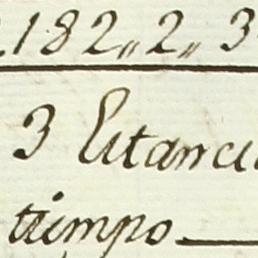 .182,,2,,3
3 Estanci
tiempo